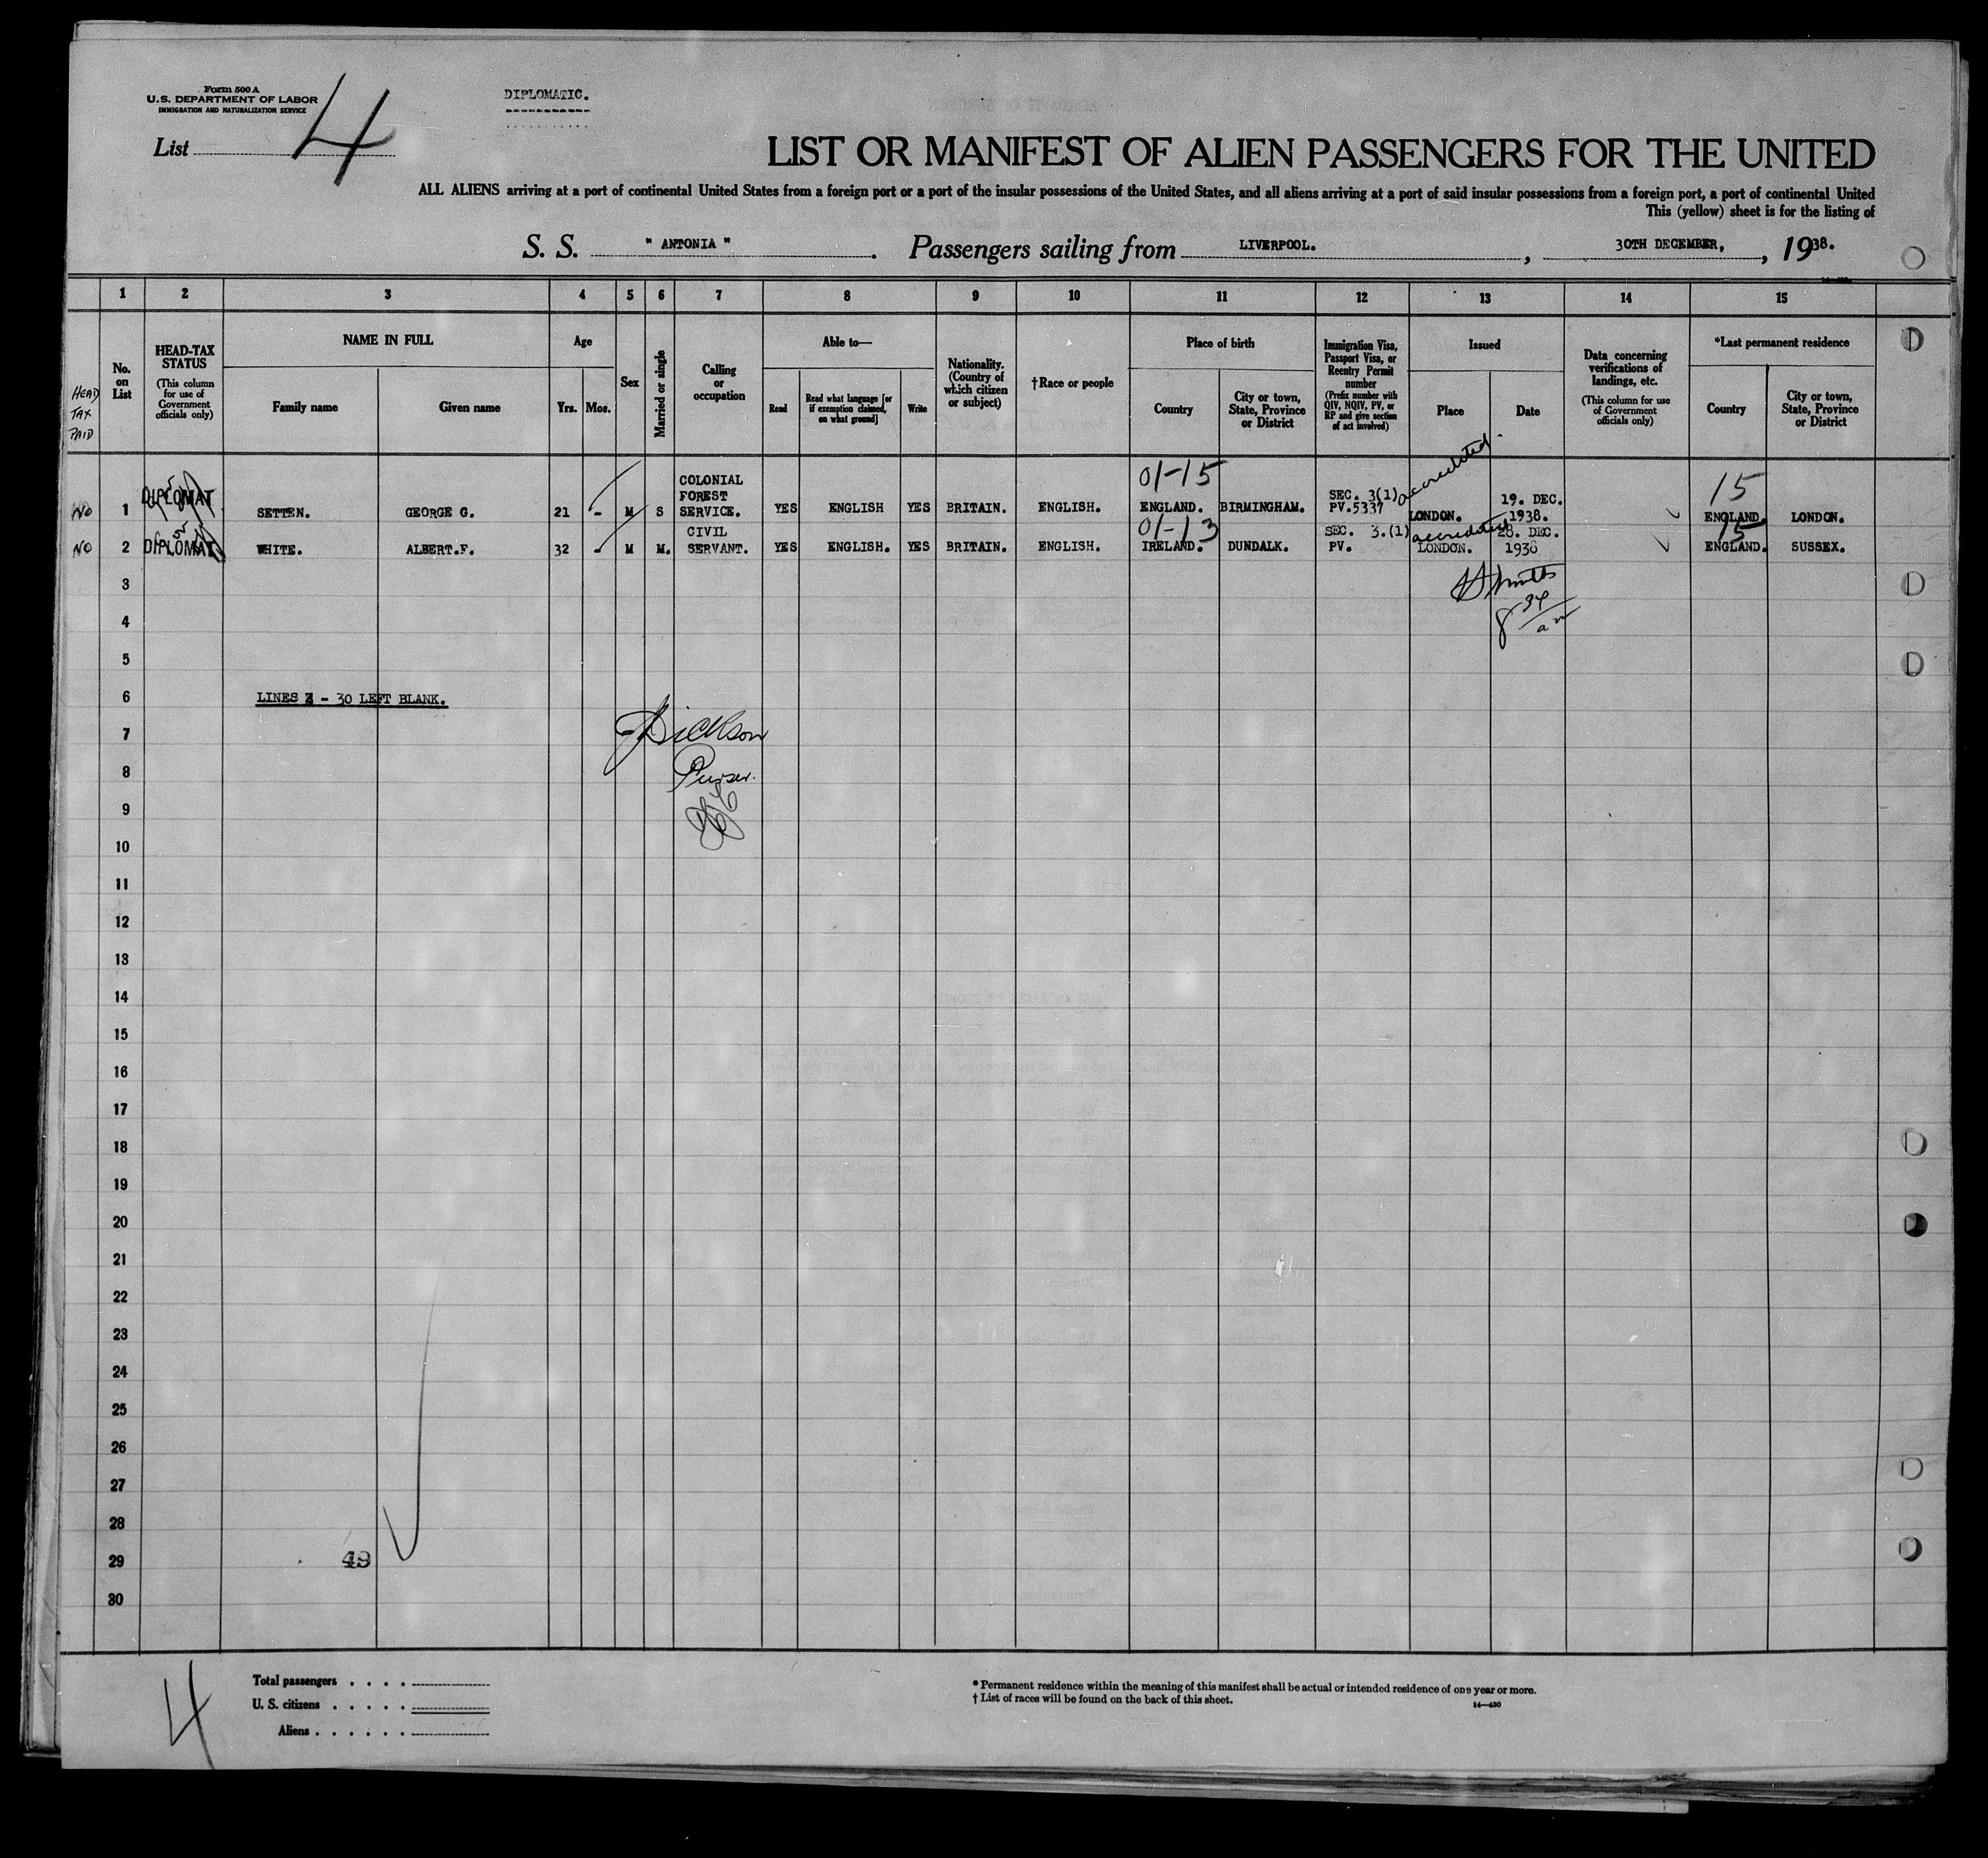 Form 500 A
U.S. DEPARTMENT OF LABOR
IMMIGRATION AND NATURALIZATION SERVICE
List 4
DIPLOMATIC.
LIST OR MANIFEST OF ALIEN PASSENGERS FOR THE UNITED
ALL ALIENS arriving at a port of continental United States from a foreign port or a port of the insular possessions of the United States, and all aliens arriving at a port of said insular possessions from a foreign port, a port of continental United
This (yellow) sheet is for the listing of
S. S. " ANTONIA ". Passengers sailing from LIVERPOOL., 30TH DECEMBER, , 1938.
1 2 3 4 5 6 7 8 9 10 11 12 13 14 15
HEAD TAX PAID
No. on List
HEAD-TAX STATUS
(This column for use of Government officials only)
NAME IN FULL
Family name
Given name
Age
Yrs. Mos.
Sex
Married or single
Calling or occupation
Able to—
Read
Read what language [or if exemption claimed, on what ground]
Write
Nationality. (Country of which citizen or subject)
†Race or people
Place of birth
Country
City or town, State, Province or District
Immigration Visa, Passport Visa, or Reentry Permit number
(Prefix number with QIV, NQIV, PV, or RP and give section of act involved)
Issued
Place
Date
Data concerning verifications of landings, etc.
(This column for use of Government officials only)
*Last permanent residence
Country
City or town, State, Province or District
NO 1 DIPLOMAT SETTEN. GEORGE G. 21 - M S COLONIAL FOREST SERVICE. YES ENGLISH YES BRITAIN. ENGLISH. 01-15 ENGLAND. BIRMINGHAM. SEC. 3(1) PV.5337 accredited LONDON. 19. DEC. 1938. 15 ENGLAND. LONDON.
NO 2 DIPLOMAT WHITE. ALBERT.F. 32 - M M. CIVIL SERVANT. YES ENGLISH. YES BRITAIN. ENGLISH. 01-13 IRELAND. DUNDALK. SEC. 3.(1) PV. accredited LONDON. 28. DEC. 1938 15 ENGLAND. SUSSEX.
3
4
8 34 am
5
6 LINES 3 - 30 LEFT BLANK.
7 Dickson
8 Purser.
9
10
11
12
13
14
15
16
17
18
19
20
21
22
23
24
25
26
27
28
29 49
30
4
Total passengers . . . .
U. S. citizens . . . . .
Aliens . . . . . .
* Permanent residence within the meaning of this manifest shall be actual or intended residence of one year or more.
† List of races will be found on the back of this sheet.
14—430